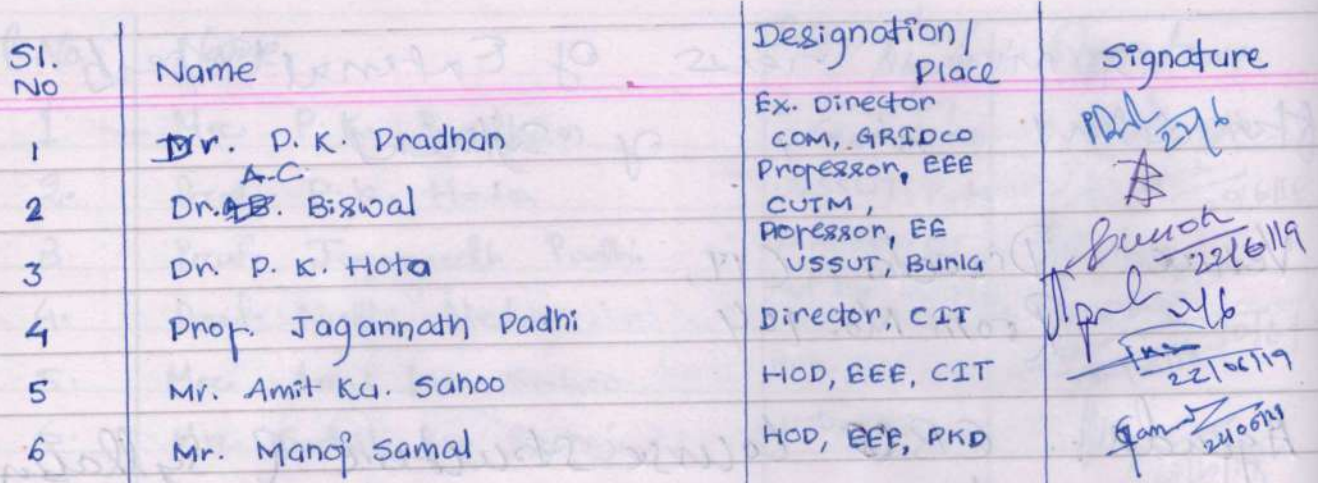 Sl. No Name Designation/ Place Signature
1 Dr. P. K. Pradhan Ex. Director COM, GRIDCO 22/6
2 Dr. A.C. Biswal Professor, EEE CUTM,
3 Dr. P. K. Hota Porfessor, EE VSSUT, Burla 22/6/19
4 Prof. Jagannath Padhi Director, CIT 22/6
5 Mr. Amit Ku. Sahoo HOD, EEE, CIT 22/06/19
6 Mr. Manoj Samal HOD, EEE, PKD